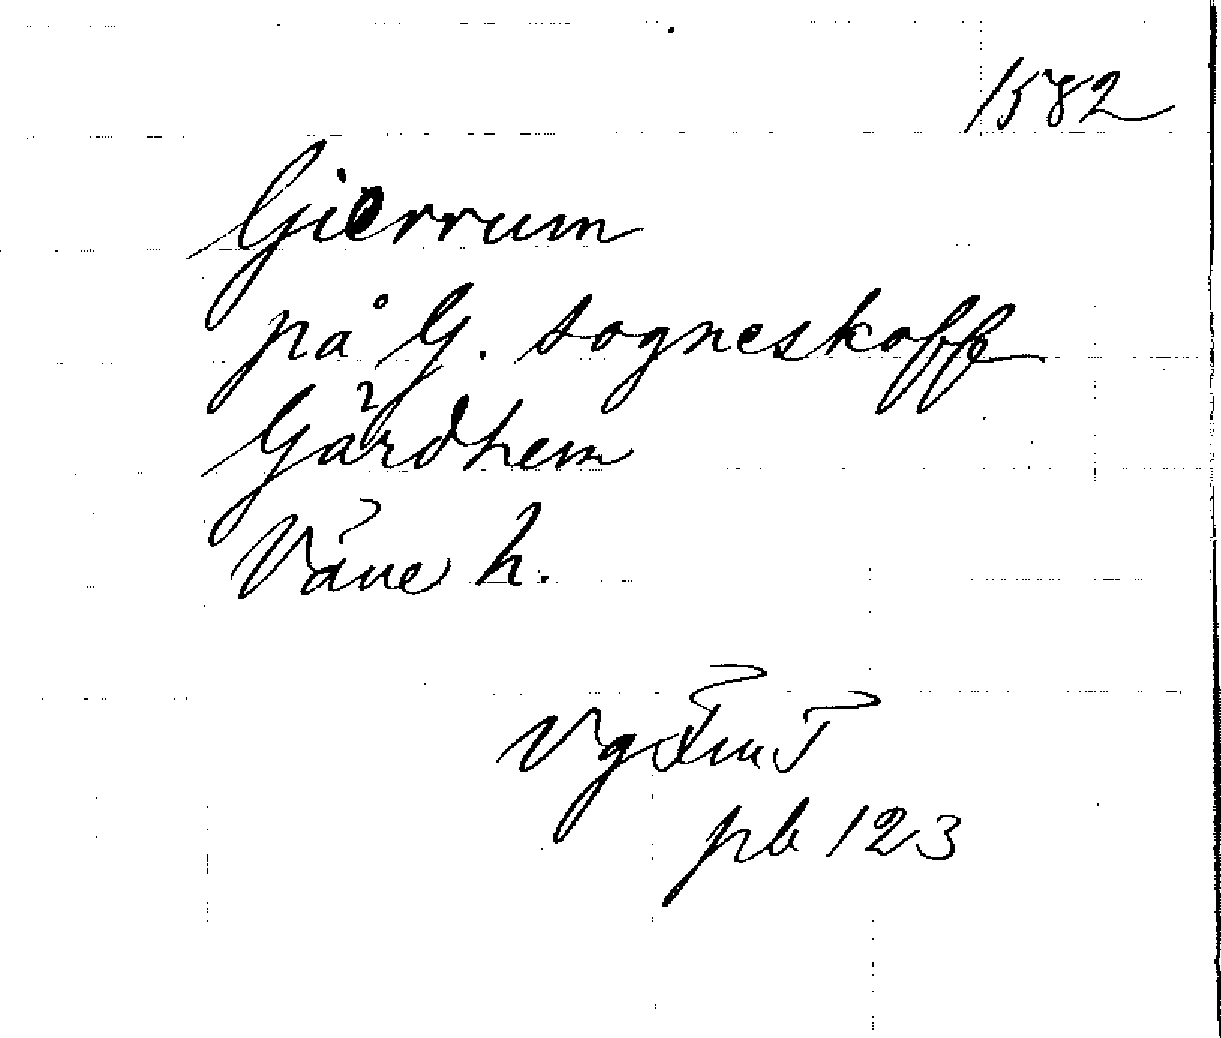 1582
Gierrum
på G. sogneskoff
Gärdhem
Väne h.
Vg
pb 123